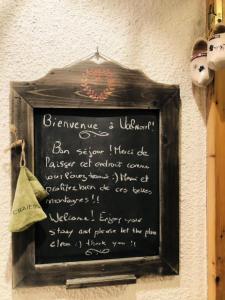 Bienvenue à Valmorel !
Bon séjour ! Merci de
laisser cet endroit comme
vous l'avez trouvé :) Merci et
profitez bien de ces belles
montagnes !!
Welcome ! Enjoy your
stay and please let the place
clean :) thank you !!